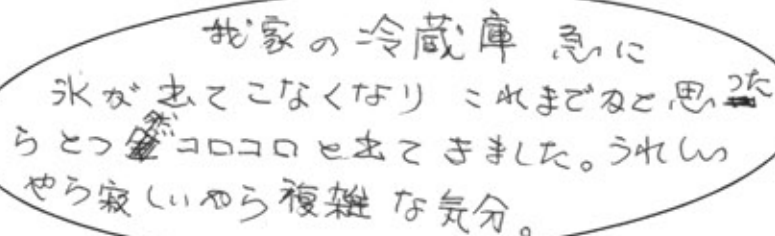 我家の冷蔵庫 急に
氷が出てこなくなり これまでかと思った
らとつ然コロコロと出てきました。うれしい
やら寂しいやら複雑な気分。